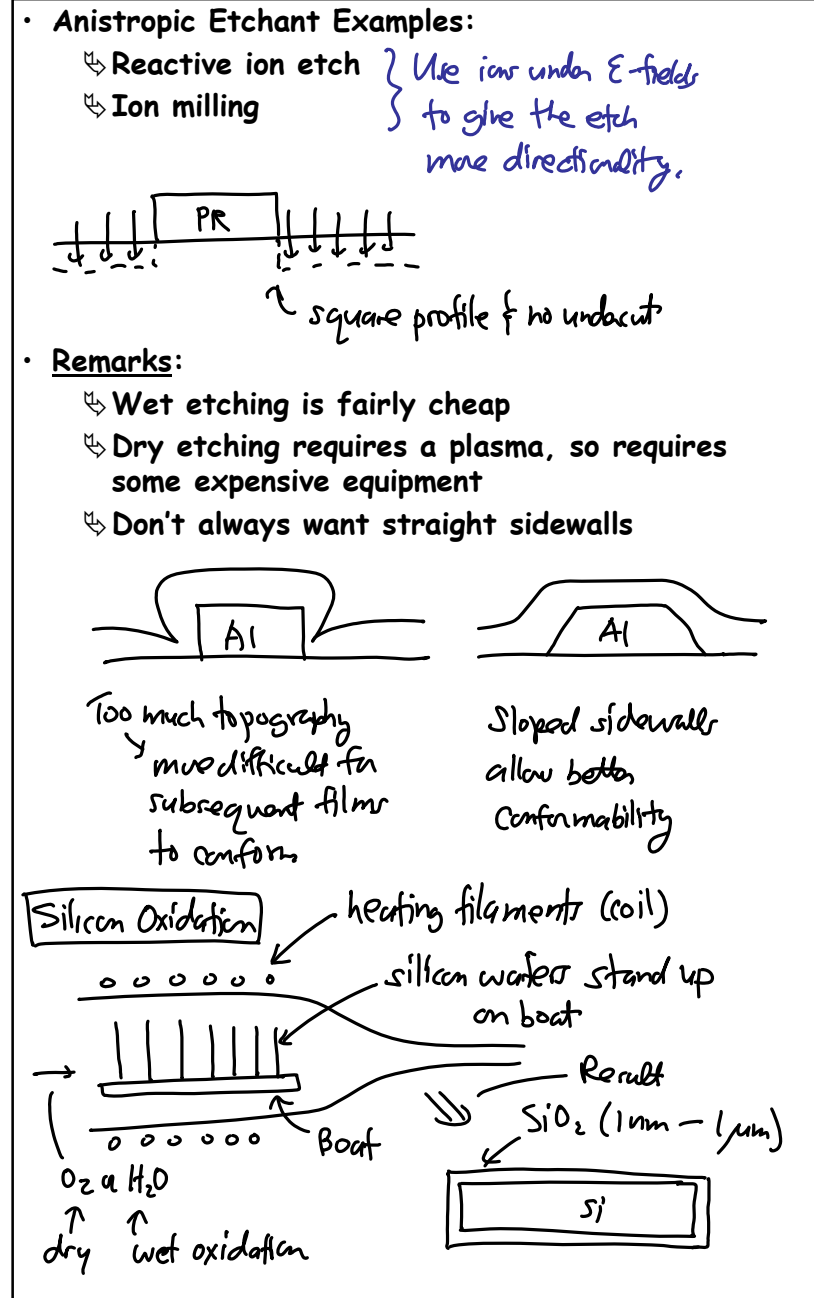 • Anistropic Etchant Examples:
Reactive ion etch
Ion milling
Use ions under E-fields
to give the etch
more directionality.
PR
square profile & no undercut
• Remarks:
Wet etching is fairly cheap
Dry etching requires a plasma, so requires
some expensive equipment
Don't always want straight sidewalls
Al
Al
Too much topography
more difficult for
subsequent films
to conform
Sloped sidewalls
allow better
conformability
Silicon Oxidation
heating filaments (coil)
silicon wafers stand up
on boat
Result
SiO₂ (1nm – 1μm)
Boat
O₂ or H₂O
Si
dry wet oxidation